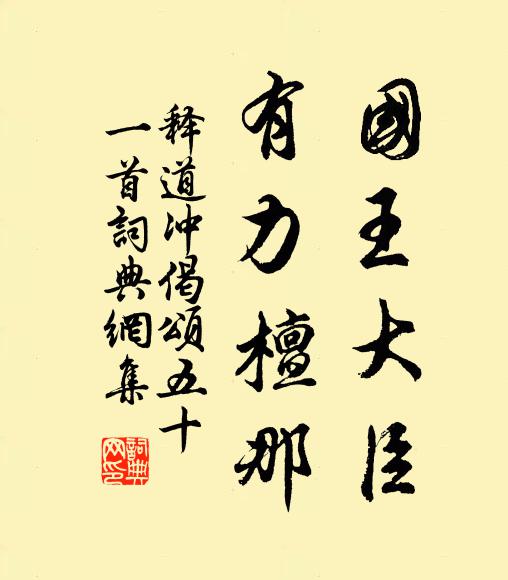 國王大臣
有力檀那
释道冲偈頌五十
一首詞典網集
詞典网印